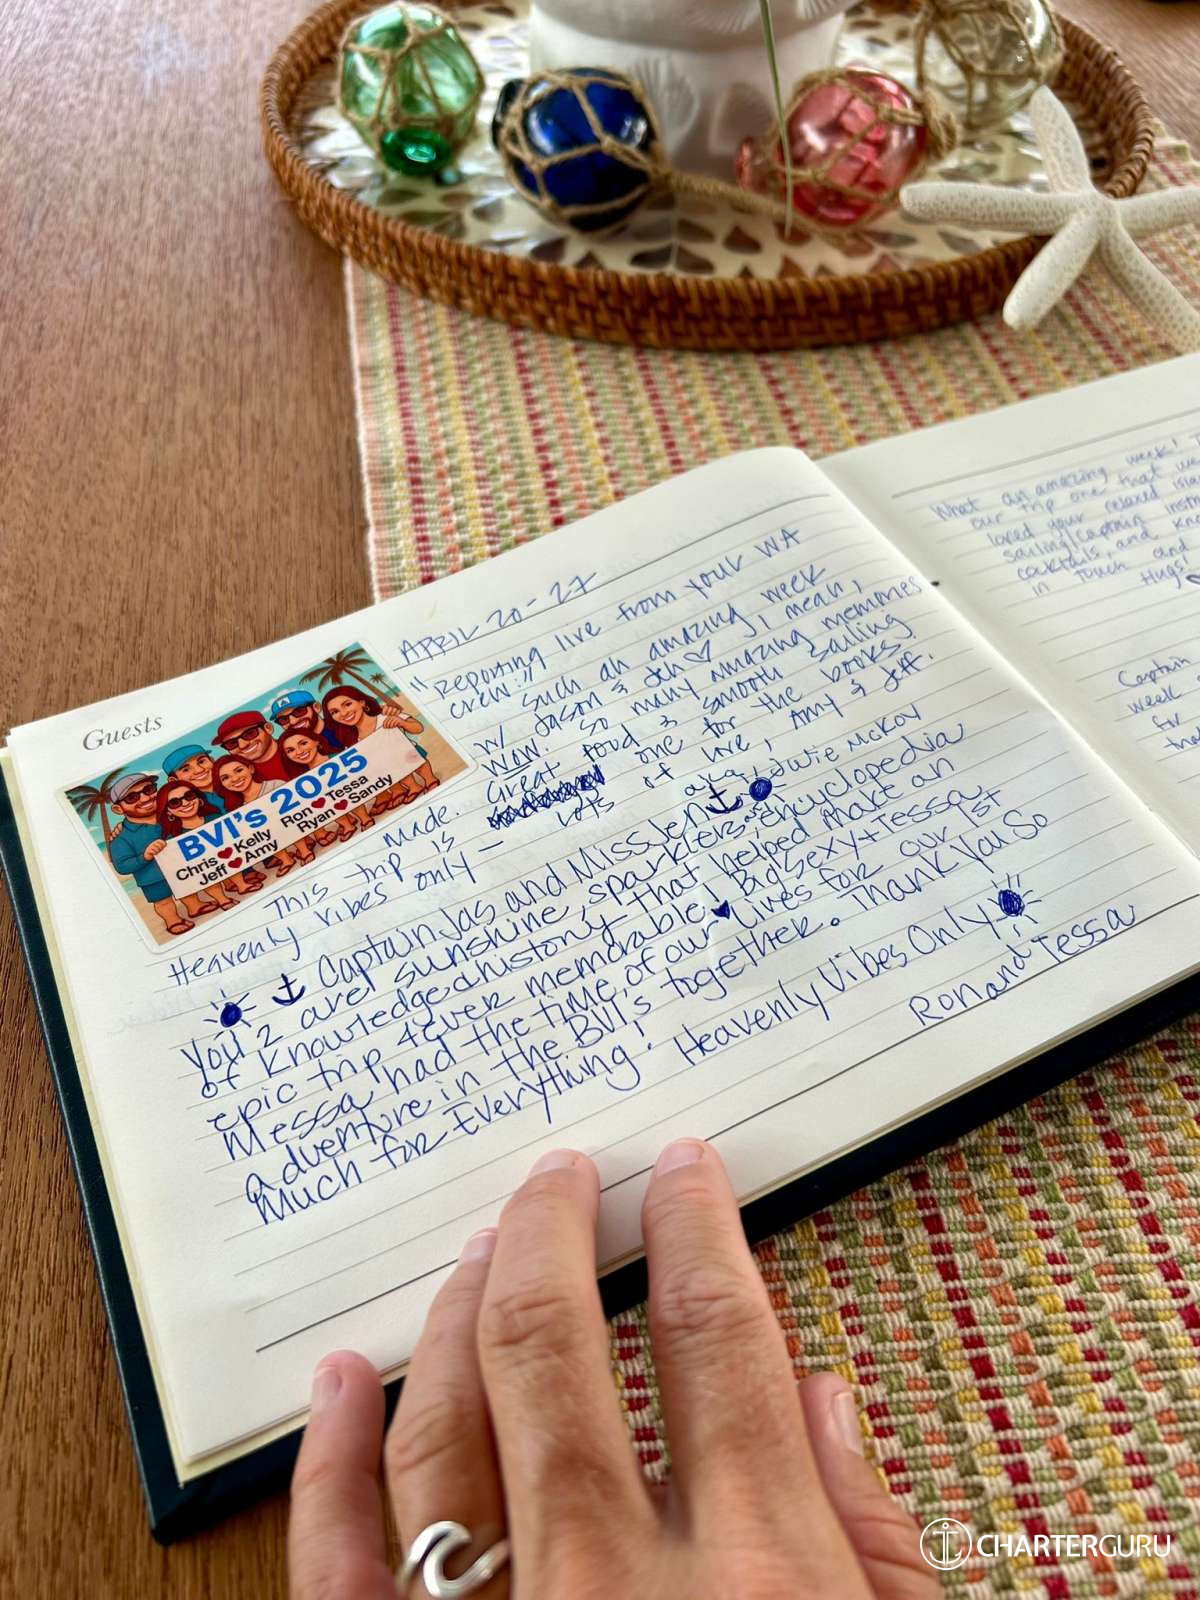 Guests
BVI's 2025
Chris ♥ Kelly Ron ♥ Tessa
Jeff ♥ Amy Ryan ♥ Sandy
APRIL 20-27
"Reporting live from your WA
crew:"
w/ such an amazing week
Jason & Jen ♡ I mean,
WOW. So many amazing memories
made. Great food & smooth sailing
This trip is one for the books.
Heavenly vibes only – Lots of love, Amy & Jeff.
aka, Edwie McKoy
Captain Jas and Miss Jen
You 2 are sunshine, sparklers, encyclopedia
of knowledge & history that helped make an
epic trip 4ever memorable! Big Sexy + Tessa
Messa had the time of our lives for our 1st
adventure in the BVI's together. Thank You So
Much for Everything! Heavenly Vibes Only
Ron and Tessa
What an amazing week!
our trip one that we
loved your relaxed
sailing/captain
cocktails, and
in touch and
Hugs!
Captain
week
for
that
CHARTERGURU